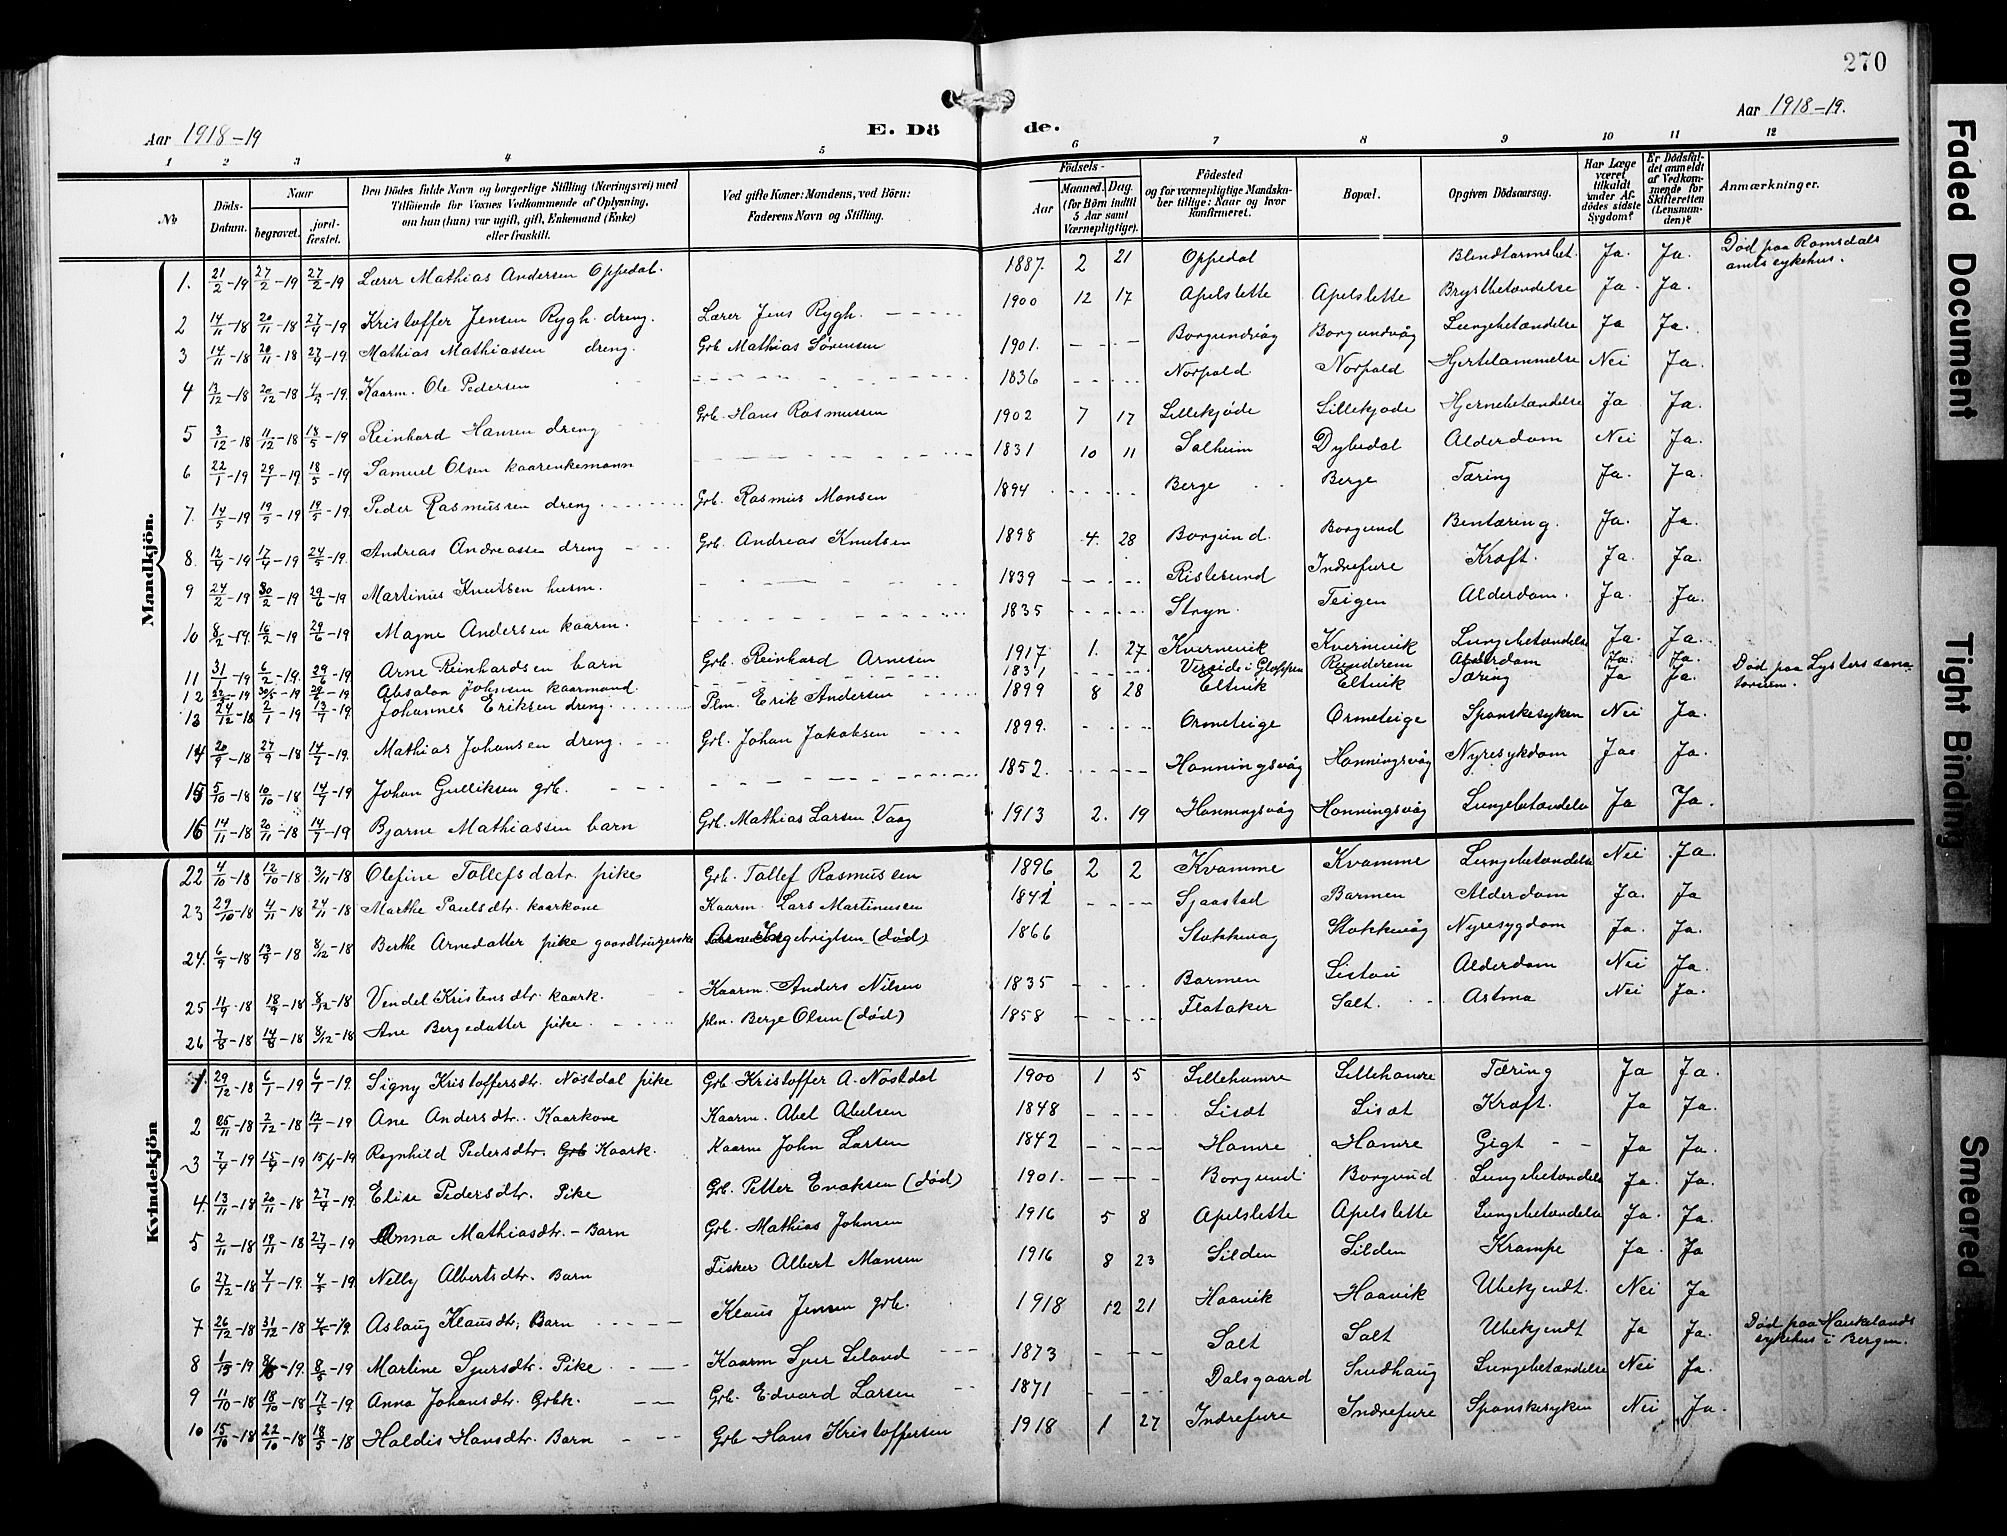 270
Aar 1918-19
E. Döde.
Aar 1918-19.
1 2 3 4 5 6 7 8 9 10 11 12
No
Döds-Datum.
Naar
begravet.
jordfæstet.
Den Dödes fulde Navn og borgerlige Stilling (Næringsvei) med Tilföiende for Voxnes Vedkommende af Oplysning, om han (hun) var ugift, gift, Enkemand (Enke) eller fraskilt.
Ved gifte Koner: Mandens, ved Börn: Faderens Navn og Stilling.
Födsels-
Aar
Maaned. Dag. (for Börn indtil 5 Aar samt Værnepligtige).
Födested og for værnepligtige Mandskaber tillige: Naar og hvor konfirmeret.
Bopæl.
Opgiven Dödsaarsag.
Har Læge været tilkaldt under Afdödes sidste Sygdom?
Er Dödsfaldet anmeldt af Vedkommende for Skifteretten (Lensmanden)?
Anmærkninger.
Mandkjön.
1. 21/2-19 27/2-19 27/2-19 Lærer Mathias Andersen Oppedal. 1887. 2 21 Oppedal Blindtarmsbet. Ja. Ja. Død paa Romsdals amts sykehus.
2 14/11-18 20/11-18 27/4-19 Kristoffer Jensen Rygh. dreng. Lærer Jens Rygh. 1900 12 17 Apelslette Apelslette Brystbetændelse Ja. Ja.
3 14/11-18 20/11-18 27/4-19. Mathias Mathiassen dreng. Grb. Mathias Sørensen 1901. Borgundvåg Borgundvåg Lungebetændelse Ja Ja.
4 13/12-18 20/12-18 4/5-19. Kaarm. Ole Pedersen 1836 Norpold Norpold Hjertelammelse Nei Ja.
5 3/12-18 11/12-18 18/5-19 Reinhard Hansen dreng Grb. Hans Rasmussen 1902 7 17 Lillekjøde Lillekjøde Hjernebetændelse Ja Ja.
6 22/1-19 29/1-19 18/5-19 Samuel Olsen kaarenkemann 1831 10 11 Solheim Dybedal Alderdom Nei Ja.
7. 14/5-19 19/5-19 19/5-19. Peder Rasmussen dreng. Grb. Rasmus Monsen 1894 Berge Berge Tæring Ja. Ja.
8. 12/4-19 17/4-19 24/5-19. Andreas Andreassen dreng Grb. Andreas Knutsen 1898 4. 28 Borgund. Borgund Bentæring. Ja. Ja.
9 24/2-19 30/2-19 29/6-19 Martinus Knutsen husm. 1839 Rislesund Indrefure Kræft. Ja. Ja.
10 8/2-19. 16/2-19 29/6-19 Magne Andersen kaarm. 1835 Stryn. Teigen Alderdom. Ja. Ja.
11 31/1-19 6/2-19. 29/6-19 Arne Reinhardsen barn Grb. Reinhard Arnesen 1917 1. 27 Kvernevik Kvernevik Lungebetændelse Ja. Ja.
12 Absalon Johnsen kaarmand. 1831 i Gloppen Alderdom Ja. Ja.
13 24/12-18 2/1-19 13/7-19 Johannes Eriksen dreng. Plm. Erik Andersen 1899 8 28 Eltvik Eltvik Tæring Ja Ja. Død paa Lysters sanatorium.
14 20/9-18 27/9-18 14/7-19. Mathias Johansen dreng. Grb. Johan Jakobsen 1899. Ormeteige Ormeteige Spanskesyken Nei Ja.
15 5/10-18 10/10-18 14/7-19 Johan Gulliksen grb. 1852. Honningsvåg Honningsvåg Nyresykdom Ja. Ja.
16 14/11-18 20/11-18 14/7-19 Bjarne Mathiassen barn Grb. Mathias Larsen Vaag 1913 2. 19 Honningsvåg Honningsvåg Lungebetændelse Ja Ja.
22 4/10-18 12/10-18 3/11-18 Olefine Tollefsdatr. pike Grb. Tollef Rasmussen 1896 2 2 Kvamme Kvamme Lungebetændelse Nei Ja.
23 29/10-18 4/11-18 24/11-18 Marthe Paulsdtr. kaarkone Kaarm. Lars Martinussen 1842 Sjaastad Barmen Alderdom Ja. Ja
24. 6/9-18 13/9-18 8/12-18 Berthe Arnedatter pike Arne Ingebrigtsen (død) 1866 Stokkevag Stokkevåg Nyresygdom Ja. Ja.
25 11/9-18 18/9-18 8/12-18 Vendel Kristensdtr. kaark. Kaarm. Anders Nilsen 1835 Barmen Alderdom Nei Ja.
26 7/8-18 14/8-18 8/12-18 Ane Bergedatter pike. plm. Berge Olsen (død) 1858 Flataker Salt. Astma Nei Ja.
Kvindekjön
1. 29/12-18 6/1-19 6/1-19. Signy Kristoffersdtr. Nöstdal pike Grb. Kristoffer A. Nöstdal 1900 1 5 Lillehamre Lillehamre Tæring Ja Ja.
2 25/11-18 2/12-18 12/1-19 Ane Andersdtr. Kaarkone Kaarm. Abel Abelsen 1848 Liset Liset Kræft. Ja Ja.
3 7/4-19 15/4-19 15/4-19 Ragnhild Pedersdtr. Grb Kaark. Kaarm John Larsen 1842 Hamre Hamre Gigt Ja Ja.
4. 13/11-18 20/11-18 27/4-19. Elise Pedersdtr. Pike Grb. Petter Enoksen (død) 1901. Borgund Borgund Lungebetændelse Ja. Ja.
5 2/11-18 19/11-18 27/4-19 Anna Mathiasdtr. - Barn Grb. Mathias Johnsen 1916 5 8 Apelslette Apelslette Lungebetændelse Ja. Ja.
6 27/12-18 4/1-19. 4/5-19 Nelly Albertsdtr. Barn Fisker Albert Monsen 1916 8 23 Silden Silden Krampe Ja. Ja
7 26/12-18 31/12-18 4/5-19. Aslaug Klausdtr. Barn Klaus Jensen grb. 1918 12 21 Haavik Haavik Ubekjendt. Nei Ja
8 Martine Sjursdtr. Pike Kaarm Sjur Leland 1873 Salt Salt Ubekjendt Ja Ja. Død paa Haukelands sykehus i Bergen.
9 11/10-18 18/10-18 17/5-19. Anna Johansdtr. Grbk. Grb. Edvard Larsen 1871 Dalsgaard Smedhaug Lungebetændelse Nei Ja.
10 15/10-18 22/10-18 18/5-18 Haldis Hansdtr. Barn Grb Hans Kristoffersen 1918 1 27 Indrefure Indrefure Spanskesyken Nei Ja.
Faded Document
Tight Binding
Smeared